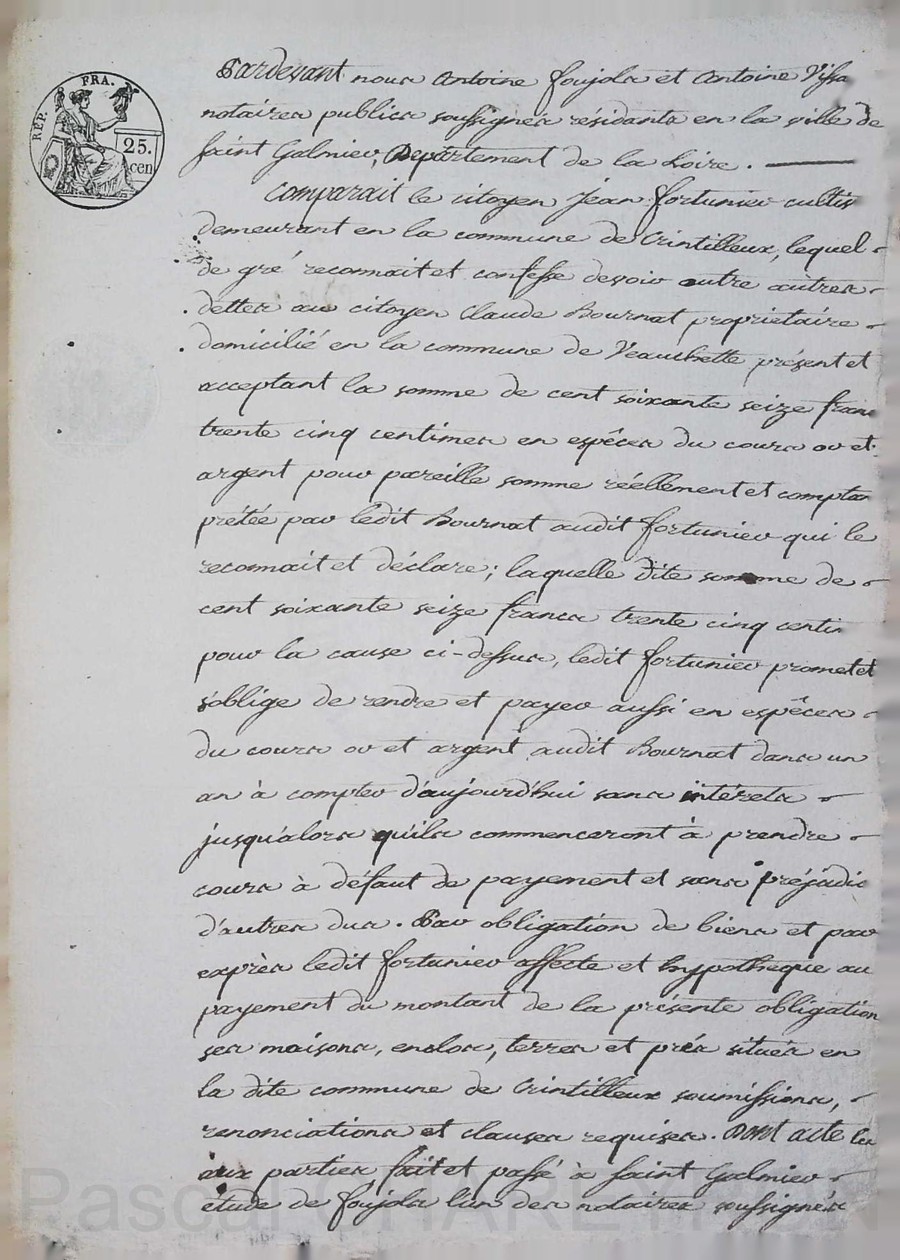 REP. FRA.
25.
cen
Pardevant nous Antoine foujols et Antoine Vissa
notaires publics soussignés résidants en la ville de
saint Galmier, Département de la Loire.
Comparait le citoyen Jean fortunier cultiv
demeurant en la commune de Crintilleux, lequel
de gré reconnait et confesse devoir outre autres
dettes au citoyen Claude Bournat proprietaire
domicilié en la commune de Veauchette présent et
acceptant la somme de cent soixante seize franc
trente cinq centimes en espêces du cours or et
argent pour pareille somme réellement et comptan
prétée par ledit Bournat audit fortunier qui le
reconnait et déclare; laquelle dite somme de
cent soixante seize francs trente cinq centim
pour la cause ci-dessus, ledit fortunier promet et
s'oblige de rendre et payer aussi en espêces
du cours or et argent audit Bournat dans un
an à compter d'aujourd'hui sans intérets
jusqu'alors qu'ils commenceront à prendre
cours à défaut de payement et sans préjudic
d'autres dus. Par obligation de biens et par
exprès ledit fortunier affecte et hypothèque au
payement du montant de la présente obligation
ses maisons, enclos, terres et prés situés en
la dite commune de Crintilleux soumissions,
renonciations et clauses requises. Dont acte lu
aux parties fait et passé à saint Galmier
étude de foujols l'un des notaires soussignés